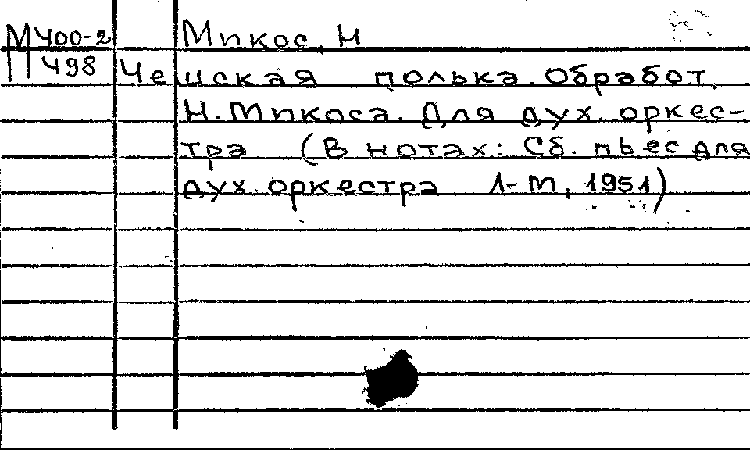 М400-2 Микос, Н
П498 Чешская полька. Обработ.
Н. Микоса. Для дух. оркес-
тра (В нотах: Сб. пьес для
дух. оркестра 1-М, 1951)